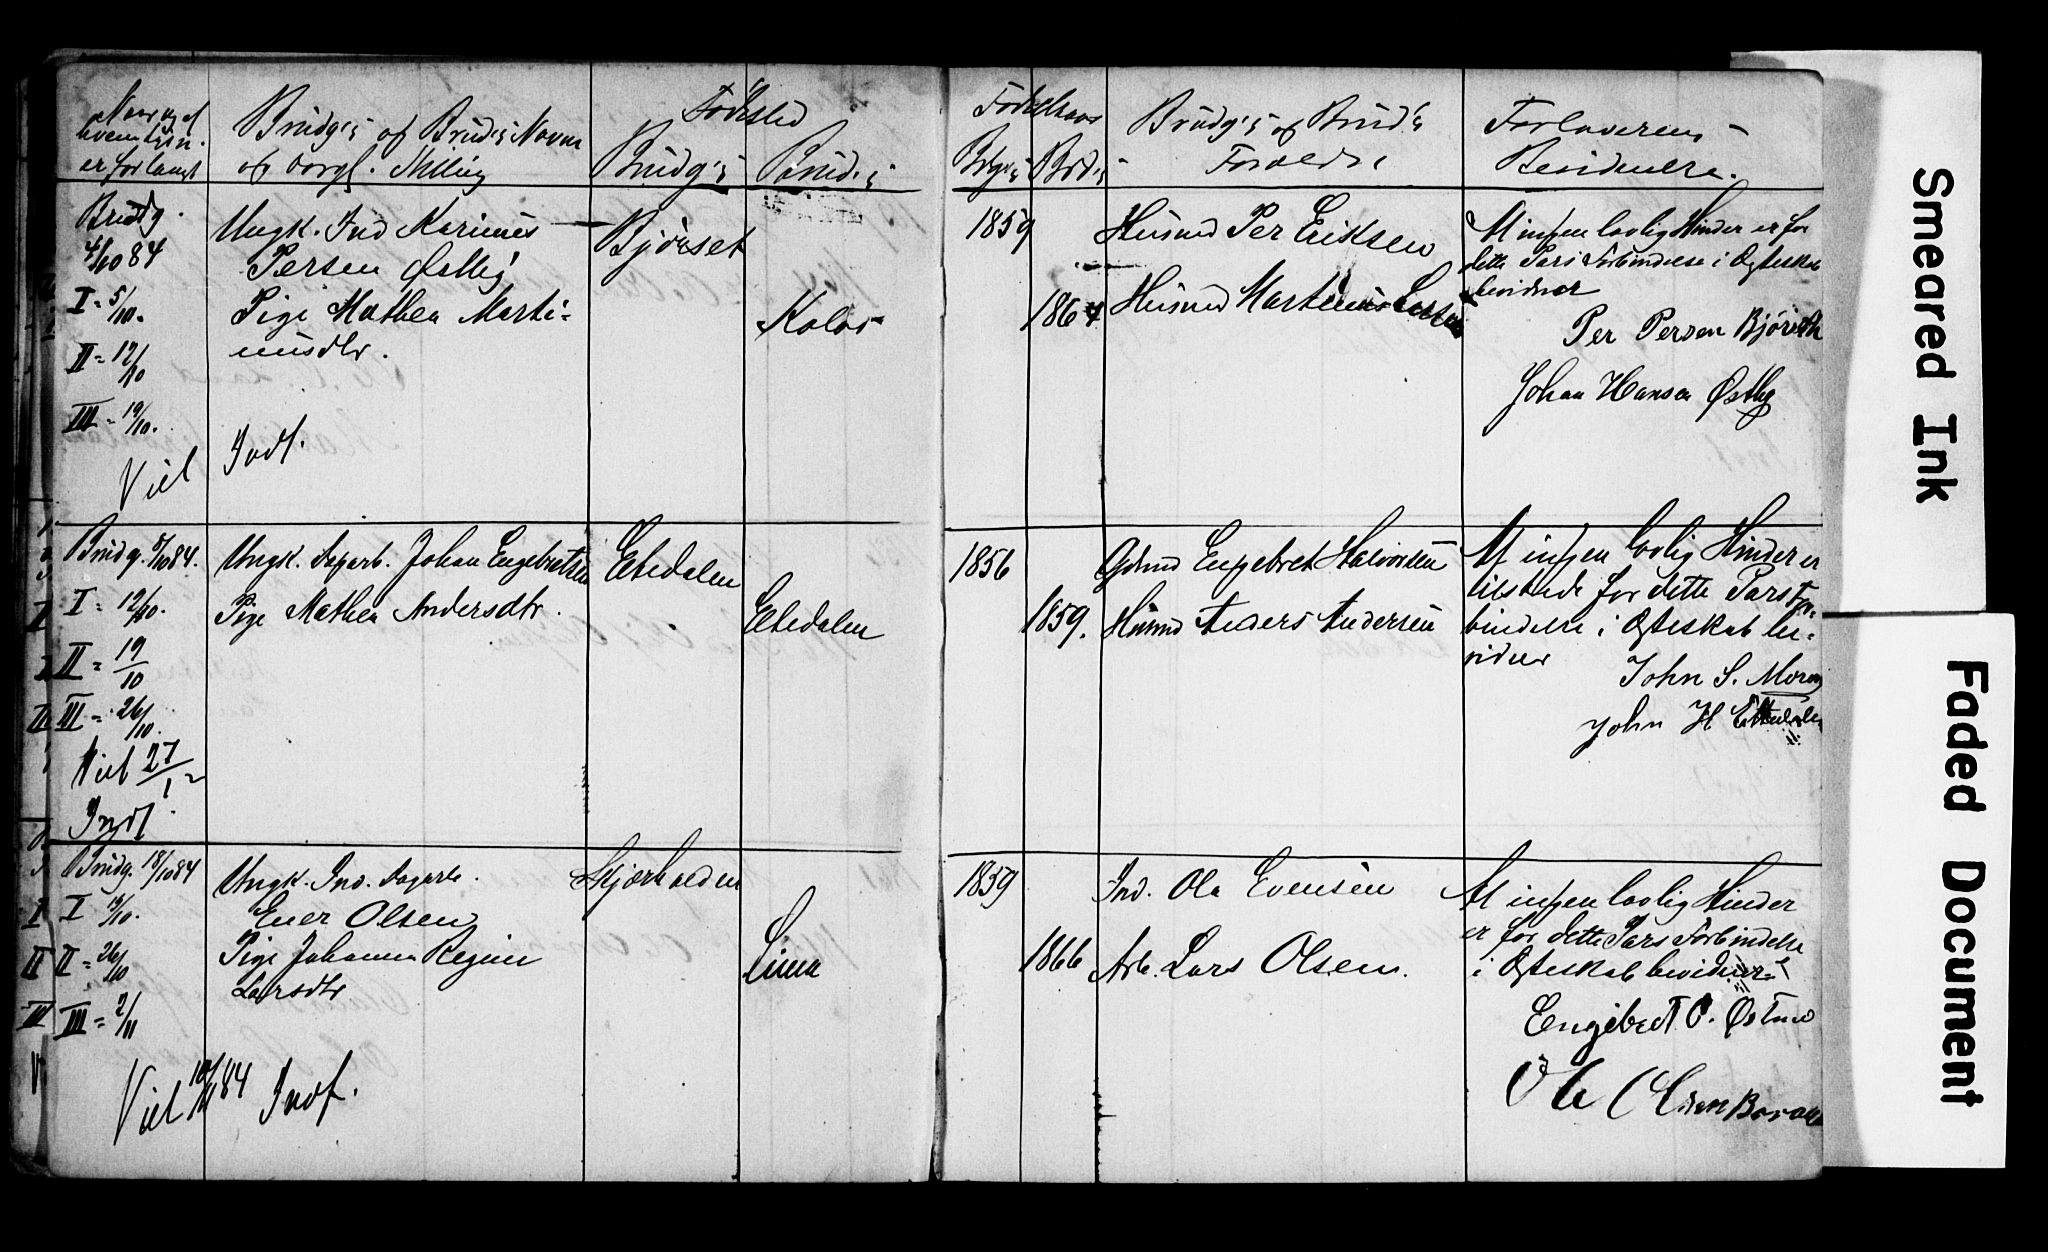 Naar og af
hvem Lysn.
er forlangt
Brudg's og Brud's Navne
og borgl. Stilling
Fødested
Brudg's
Brud's
Fødselsaar
Brdg's
Brd's
Brudg's og Brud's
Forældre
Forloverens
Bevidnelse.
Brudg.
4/10 84
I = 5/10.
II = 12/10
III = 19/10.
Viet
Ungk. Ind Karinus
Persen Østby
Pige Mathea Marti-
nusdtr.
Indf.
Bjørset
Kolos
1859
1864
Husmd Per Eriksen
Husmd Martinus Larsen
At ingen lovlig Hinder er for
dette Pars Forbindelse i Ægteskab
bevidner
Per Persen
Johan Hansen Østby
Brudg. 5/10 84.
I = 12/10.
II = 19/10
III = 26/10.
Viet 27/12
Indf.
Ungk. Dagarb. Johan Engebretsen
Pige Mathea Andersdtr.
Etedalen
Etedalen
1856
1859.
Gdmd Engebret Halvorsen
Husmd Anders Andersen
At ingen lovlig Hinder er
tilstede for dette Pars For-
bindelse i Ægteskab be-
vidner
John S. Moren
John H Ettedalen
Brudg. 18/10 84
I 19/10.
II = 26/10
III = 2/11
Viet 10/11 84 Indf.
Ungk. Ind. Dagarb.
Ener Olsen
Pige Johanna Regine
Larsdtr
Skjærholden
1859
1866
Ind. Ola Evensen
Arb. Lars Olsen.
At ingen lovlig Hinder
er for dette Pars Forbindelse
i Ægteskab bevidner
Engebret O.
Ole Olsen
Smeared Ink
Faded Document